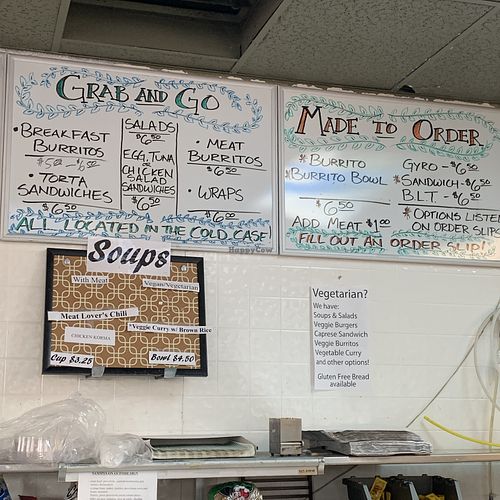 GRAB AND GO
• BREAKFAST
BURRITOS
$5.00 - $6.50
• TORTA
SANDWICHES
$6.50
SALADS
$6.50
EGG, TUNA
OR
CHICKEN
SALAD
SANDWICHES
$6.50
• MEAT
BURRITOS
$6.50
• WRAPS
$6.00
ALL LOCATED IN THE COLD CASE!
MADE TO ORDER
*BURRITO
*BURRITO BOWL
$6.50
ADD MEAT $1.00
GYRO - $6.50
*SANDWICH - $6.50
BLT - $6.50
*OPTIONS LISTE
ON ORDER SLIP
FILL OUT AN ORDER SLIP!
HappyCow
Soups
With Meat
Vegan/Vegetarian
Meat Lover's Chili
*Veggie Curry w/ Brown Rice
CHICKEN KORMA
Cup $3.25
Bowl $4.50
Vegetarian?
We have:
Soups & Salads
Veggie Burgers
Caprese Sandwich
Veggie Burritos
Vegetable Curry
and other options!
Gluten Free Bread
available